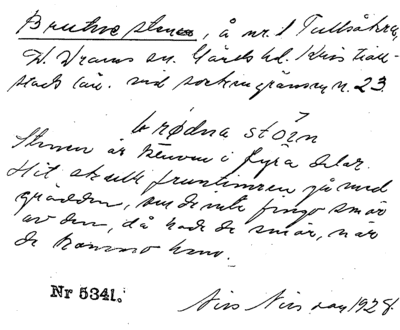 Brukne stenen, å nr. 1 Tullsåkra,
V. Vrams sn. Gärds hd. Kristian-
stads län. vid sockengränsen n. 23.
brødna stöin
Stenen är kluven i fyra delar.
Hit skulle fruntimren gå med
grädden, om de inte fingo smör
av den, då hade de smör, när
de kommo hem.
Nr 5341.
Nils Nilsson 1928.